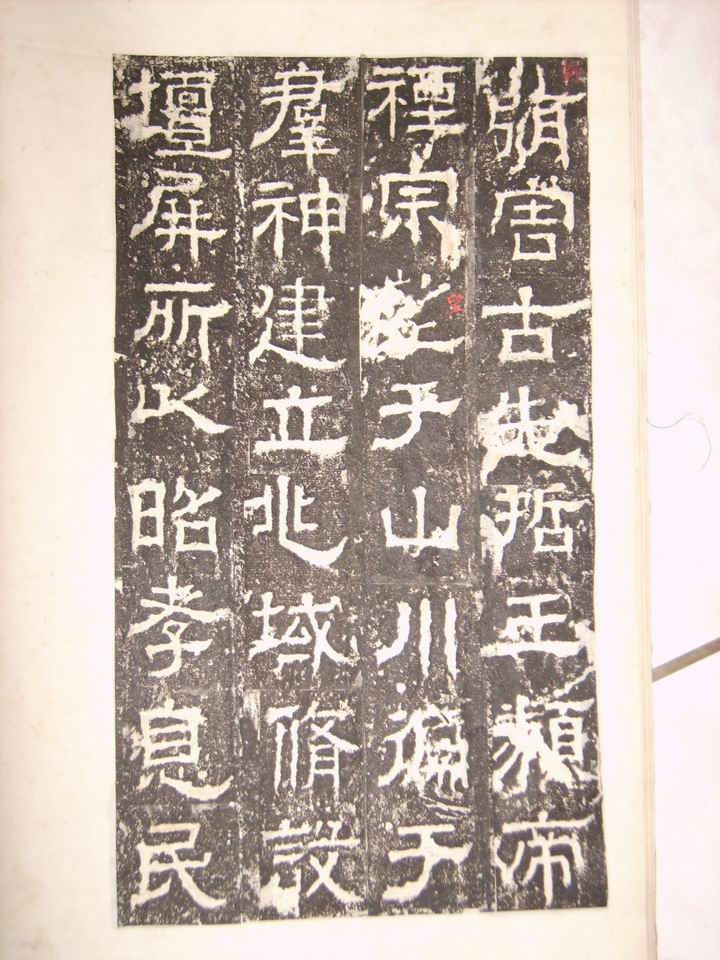 弭害古先哲王類帝
禋宗望于山川徧于
羣神建立兆域脩設
壇屏所以昭孝息民